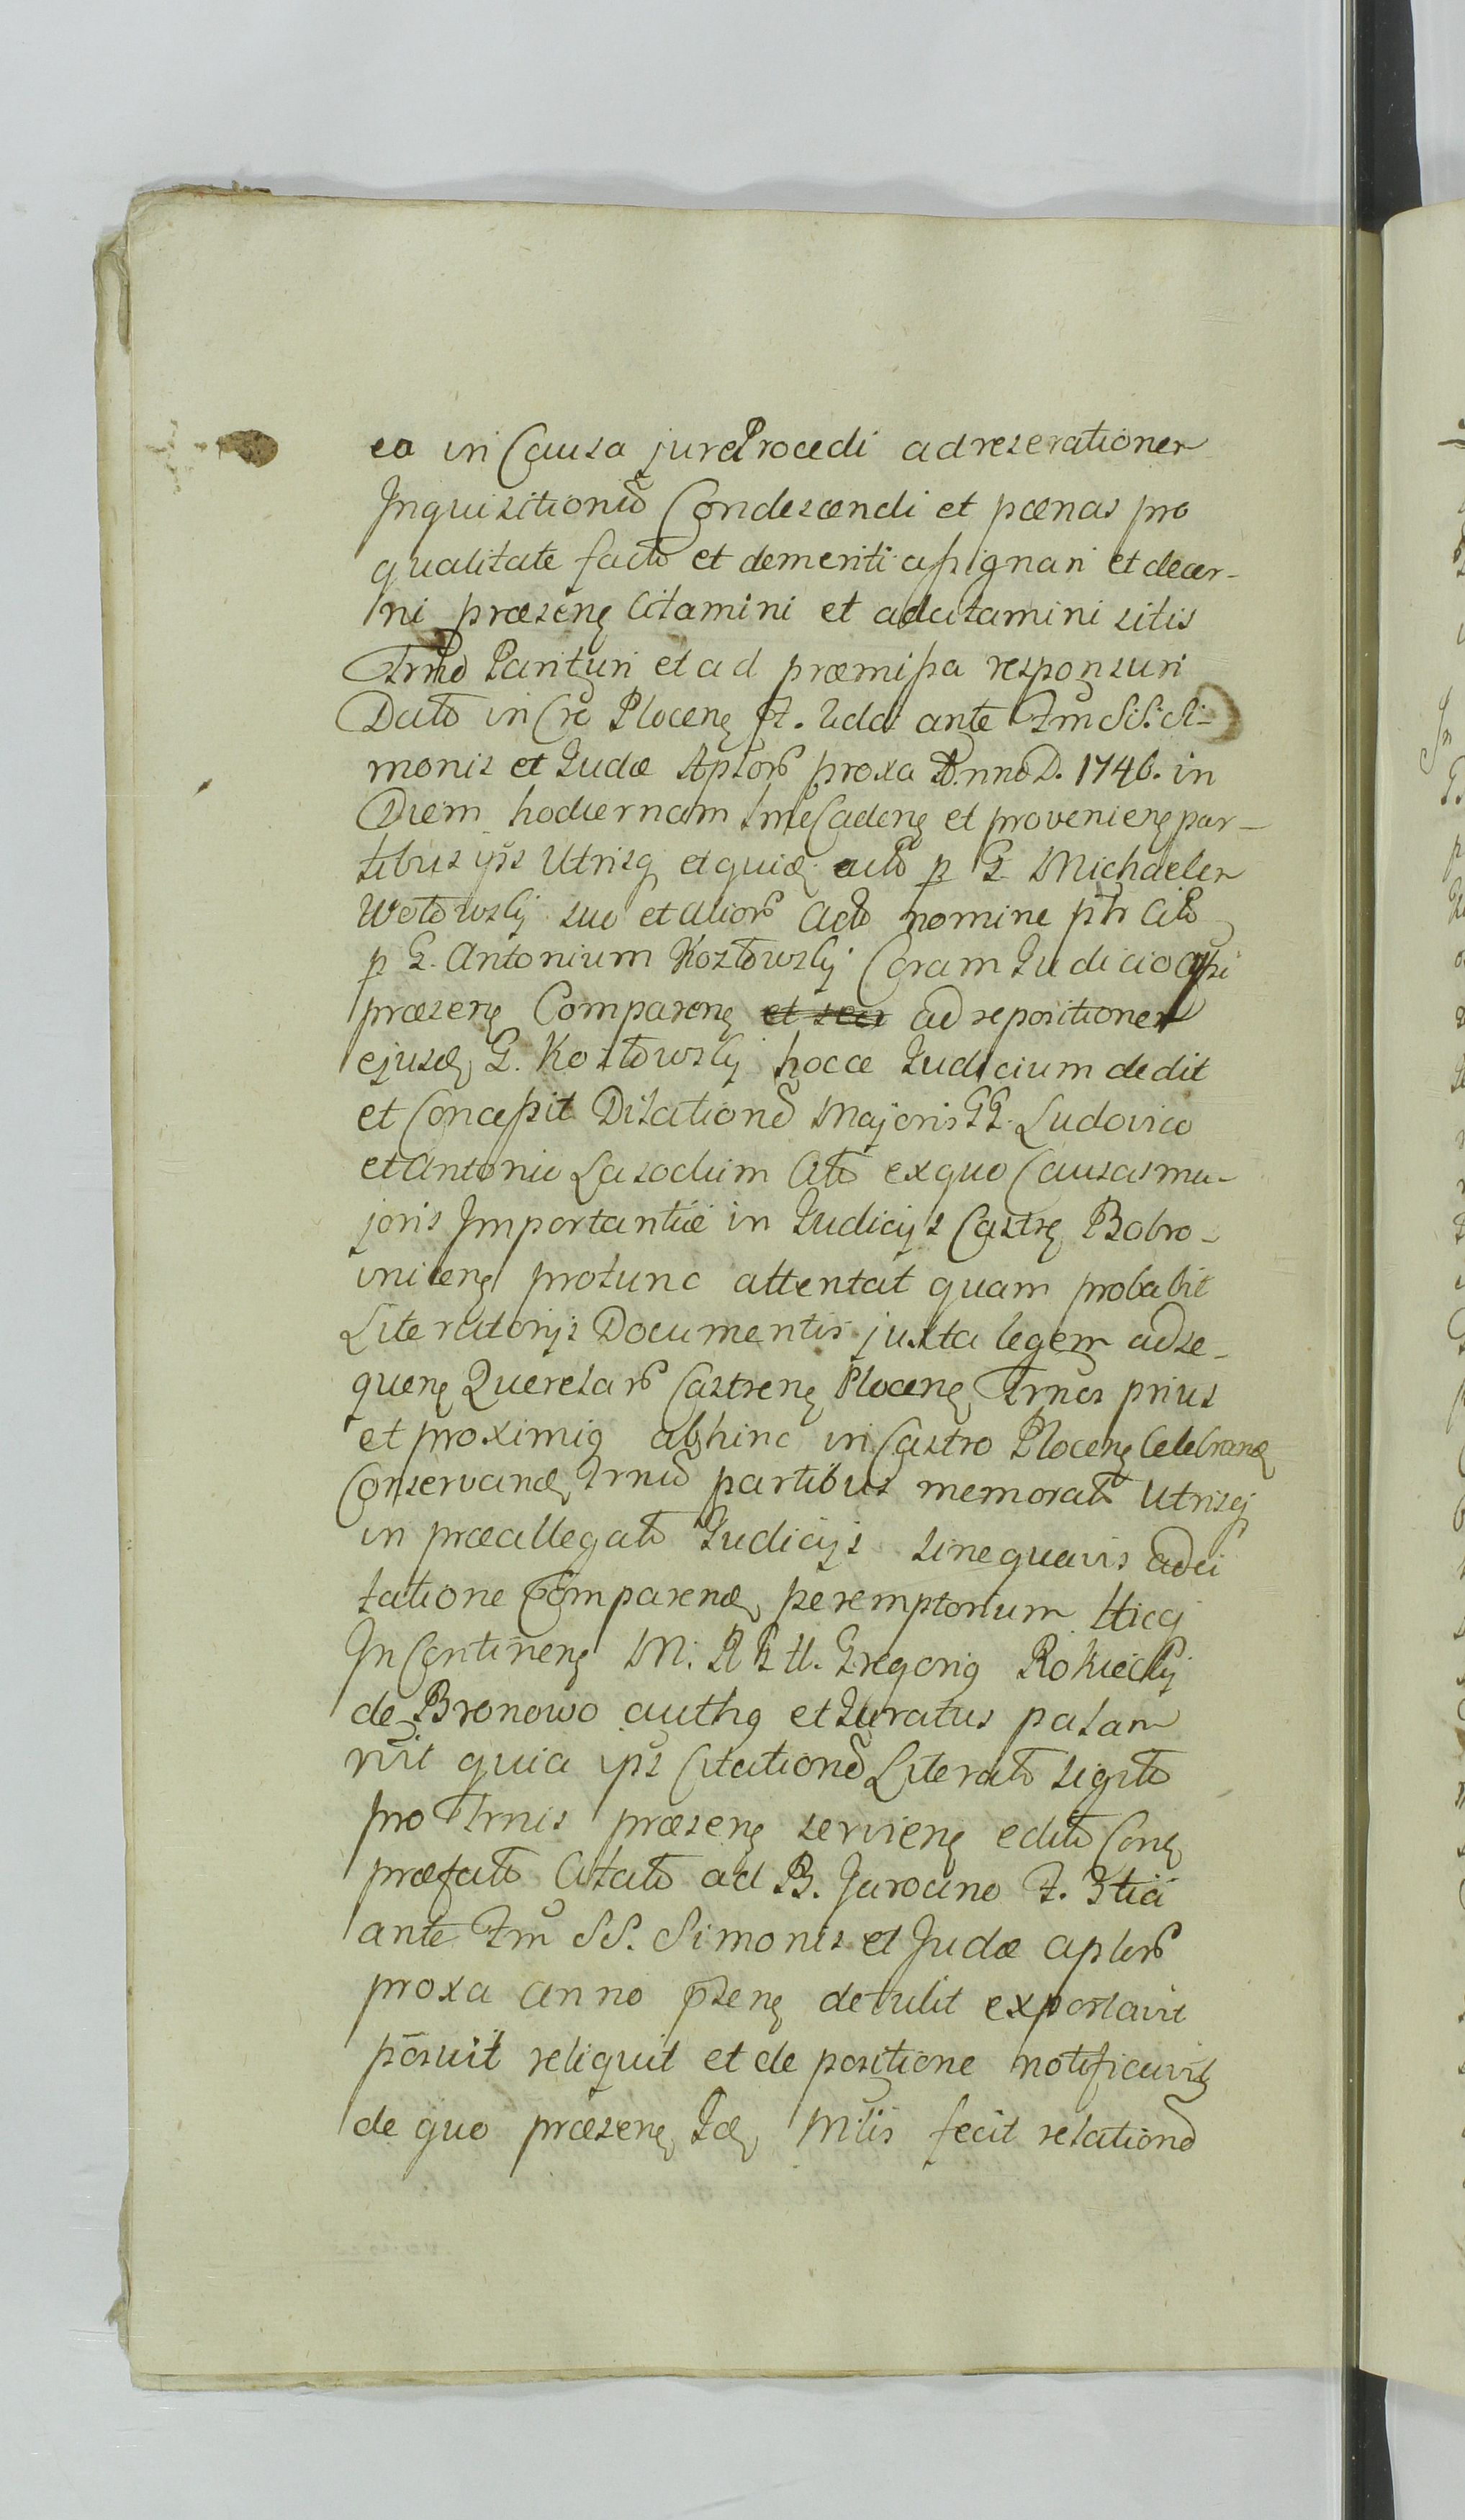 ea in Causa jure Procedi ad reserationem
Inquisitionu Condescendi et pœnas pro
qualitate facti et demeriti assignari et decer-
ni præsenƺ Citamini et adcitamini sitis
Trnio Parituri et ad præmissa responsuri
Dato in Cro Plocenƺ F. 2da ante Fm SS. Si-
monis et Judæ Aplorƀ proxa Anno D. 1746. in
Diem hodiernam Cadenƺ et provenienƺ par-
tibus ips Utrisq et quidƺ p G. Michaelem
Wotowskij suo et aliorƀ nomine
p G. Antonium Kozłowskij Coram Judicio
præsenƺ Comparenƺ ad repositionem
ejusdƺ G. Kozłowskij hocce Judicium dedit
et Concessit Dilationē Majoris GG. Ludovico
et Antonio Lasockim ex quo Causas ma-
joris Importantiæ in Judicijs Castrƺ Bobro-
vnicenƺ protunc attentat quam probabit
Literatorijs Documentis juxta legem ad se-
quenƺ Querelarƀ Castrenƺ Plocenƺ Trnos prius
et proximiq abhinc in Castro Plocenƺ Celebrand
Conservandƺ Trniū partibus memorat Utrisq
in præallegat Judicijs sine quavis adci
tatione Comparendƺ peremptorium Hicq
In Continenƺ M. R. R. H. Gregoriq Rokickij
de Bronowo authq et Juratus palam
rūit quia ips Citationē Literat
pro Trnis præsenƺ servienƺ edit Conƺ
præfat Citat ad B. Jarocino F. 3tia
ante Fm SS. Simonis et Judæ aplorƀ
proxa anno psenƺ detulit exportavit
posuit reliquit et de positione notificavit
de quo præsenƺ Idƺ Mlis fecit relationē